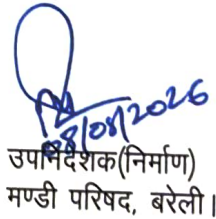 08/08/2026
उपनिदेशक(निर्माण)
मण्डी परिषद, बरेली।